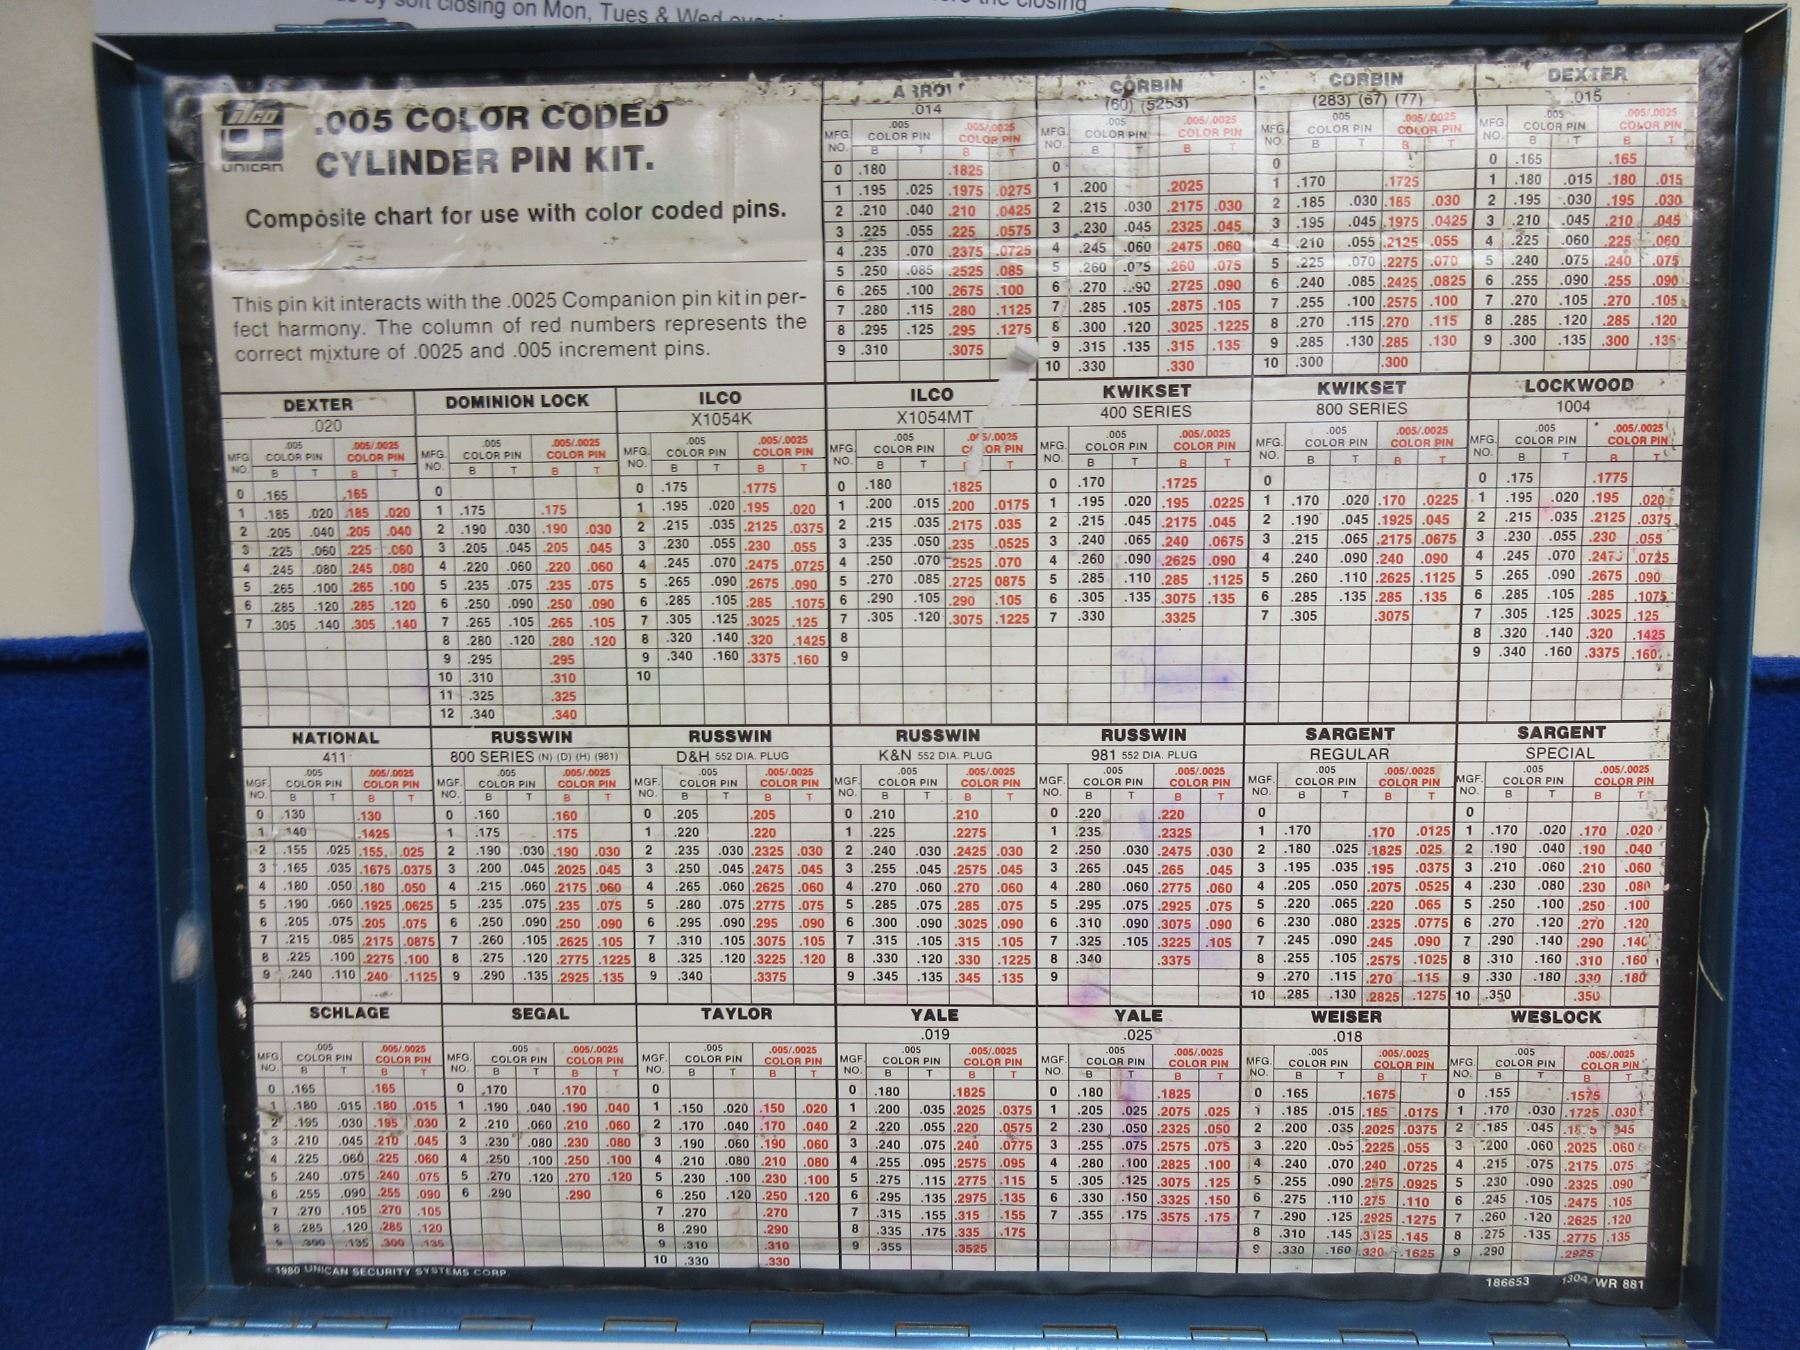 by soft closing on Mon, Tues & Wed
the closing
ilco
UNICAN
.005 COLOR CODED
CYLINDER PIN KIT.
Composite chart for use with color coded pins.
This pin kit interacts with the .0025 Companion pin kit in per-
fect harmony. The column of red numbers represents the
correct mixture of .0025 and .005 increment pins.
ARROW
.014
MFG. NO. .005 COLOR PIN .005/.0025 COLOR PIN
B T B T
0 .180 .1825
1 .195 .025 .1975 .0275
2 .210 .040 .210 .0425
3 .225 .055 .225 .0575
4 .235 .070 .2375 .0725
5 .250 .085 .2525 .085
6 .265 .100 .2675 .100
7 .280 .115 .280 .1125
8 .295 .125 .295 .1275
9 .310 .3075
CORBIN
(60) (5253)
MFG. NO. .005 COLOR PIN .005/.0025 COLOR PIN
B T B T
0
1 .200 .2025
2 .215 .030 .2175 .030
3 .230 .045 .2325 .045
4 .245 .060 .2475 .060
5 .260 .075 .260 .075
6 .270 .090 .2725 .090
7 .285 .105 .2875 .105
8 .300 .120 .3025 .1225
9 .315 .135 .315 .135
10 .330 .330
CORBIN
(283) (67) (77)
MFG. NO. .005 COLOR PIN .005/.0025 COLOR PIN
B T B T
0
1 .170 .1725
2 .185 .030 .185 .030
3 .195 .045 .1975 .0425
4 .210 .055 .2125 .055
5 .225 .070 .2275 .070
6 .240 .085 .2425 .0825
7 .255 .100 .2575 .100
8 .270 .115 .270 .115
9 .285 .130 .285 .130
10 .300 .300
DEXTER
.015
MFG. NO. .005 COLOR PIN .005/.0025 COLOR PIN
B T B T
0 .165 .165
1 .180 .015 .180 .015
2 .195 .030 .195 .030
3 .210 .045 .210 .045
4 .225 .060 .225 .060
5 .240 .075 .240 .075
6 .255 .090 .255 .090
7 .270 .105 .270 .105
8 .285 .120 .285 .120
9 .300 .135 .300 .135
DEXTER
.020
MFG. NO. .005 COLOR PIN .005/.0025 COLOR PIN
B T B T
0 .165 .165
1 .185 .020 .185 .020
2 .205 .040 .205 .040
3 .225 .060 .225 .060
4 .245 .080 .245 .080
5 .265 .100 .265 .100
6 .285 .120 .285 .120
7 .305 .140 .305 .140
DOMINION LOCK
MFG. NO. .005 COLOR PIN .005/.0025 COLOR PIN
B T B T
0
1 .175 .175
2 .190 .030 .190 .030
3 .205 .045 .205 .045
4 .220 .060 .220 .060
5 .235 .075 .235 .075
6 .250 .090 .250 .090
7 .265 .105 .265 .105
8 .280 .120 .280 .120
9 .295 .295
10 .310 .310
11 .325 .325
12 .340 .340
ILCO
X1054K
MFG. NO. .005 COLOR PIN .005/.0025 COLOR PIN
B T B T
0 .175 .1775
1 .195 .020 .195 .020
2 .215 .035 .2125 .0375
3 .230 .055 .230 .055
4 .245 .070 .2475 .0725
5 .265 .090 .2675 .090
6 .285 .105 .285 .1075
7 .305 .125 .3025 .125
8 .320 .140 .320 .1425
9 .340 .160 .3375 .160
10
ILCO
X1054MT
MFG. NO. .005 COLOR PIN .005/.0025 COLOR PIN
B T T
0 .180 .1825
1 .200 .015 .200 .0175
2 .215 .035 .2175 .035
3 .235 .050 .235 .0525
4 .250 .070 .2525 .070
5 .270 .085 .2725 0875
6 .290 .105 .290 .105
7 .305 .120 .3075 .1225
8
9
KWIKSET
400 SERIES
MFG. NO. .005 COLOR PIN .005/.0025 COLOR PIN
B T B T
0 .170 .1725
1 .195 .020 .195 .0225
2 .215 .045 .2175 .045
3 .240 .065 .240 .0675
4 .260 .090 .2625 .090
5 .285 .110 .285 .1125
6 .305 .135 .3075 .135
7 .330 .3325
KWIKSET
800 SERIES
MFG. NO. .005 COLOR PIN .005/.0025 COLOR PIN
B T B T
0
1 .170 .020 .170 .0225
2 .190 .045 .1925 .045
3 .215 .065 .2175 .0675
4 .240 .090 .240 .090
5 .260 .110 .2625 .1125
6 .285 .135 .285 .135
7 .305 .3075
LOCKWOOD
1004
MFG. NO. .005 COLOR PIN .005/.0025 COLOR PIN
B T B T
0 .175 .1775
1 .195 .020 .195 .020
2 .215 .035 .2125 .0375
3 .230 .055 .230 .055
4 .245 .070 .0725
5 .265 .090 .2675 .090
6 .285 .105 .285 .1075
7 .305 .125 .3025 .125
8 .320 .140 .320 .1425
9 .340 .160 .3375 .160
NATIONAL
411
MGF. NO. .005 COLOR PIN .005/.0025 COLOR PIN
B T B T
0 .130 .130
1 .140 .1425
2 .155 .025 .155 .025
3 .165 .035 .1675 .0375
4 .180 .050 .180 .050
5 .190 .060 .1925 .0625
6 .205 .075 .205 .075
7 .215 .085 .2175 .0875
8 .225 .100 .2275 .100
9 .240 .110 .240 .1125
RUSSWIN
800 SERIES (N) (D) (H) (981)
MGF. NO. .005 COLOR PIN .005/.0025 COLOR PIN
B T B T
0 .160 .160
1 .175 .175
2 .190 .030 .190 .030
3 .200 .045 .2025 .045
4 .215 .060 .2175 .060
5 .235 .075 .235 .075
6 .250 .090 .250 .090
7 .260 .105 .2625 .105
8 .275 .120 .2775 .1225
9 .290 .135 .2925 .135
RUSSWIN
D&H 552 DIA. PLUG
MGF. NO. .005 COLOR PIN .005/.0025 COLOR PIN
B T B T
0 .205 .205
1 .220 .220
2 .235 .030 .2325 .030
3 .250 .045 .2475 .045
4 .265 .060 .2625 .060
5 .280 .075 .2775 .075
6 .295 .090 .295 .090
7 .310 .105 .3075 .105
8 .325 .120 .3225 .120
9 .340 .3375
RUSSWIN
K&N 552 DIA. PLUG
MGF. NO. .005 COLOR PIN .005/.0025 COLOR PIN
B T B T
0 .210 .210
1 .225 .2275
2 .240 .030 .2425 .030
3 .255 .045 .2575 .045
4 .270 .060 .270 .060
5 .285 .075 .285 .075
6 .300 .090 .3025 .090
7 .315 .105 .315 .105
8 .330 .120 .330 .1225
9 .345 .135 .345 .135
RUSSWIN
981 552 DIA. PLUG
MGF. NO. .005 COLOR PIN .005/.0025 COLOR PIN
B T B T
0 .220 .220
1 .235 .2325
2 .250 .030 .2475 .030
3 .265 .045 .265 .045
4 .280 .060 .2775 .060
5 .295 .075 .2925 .075
6 .310 .090 .3075 .090
7 .325 .105 .3225 .105
8 .340 .3375
9
SARGENT
REGULAR
MGF. NO. .005 COLOR PIN .005/.0025 COLOR PIN
B T B T
0
1 .170 .170 .0125
2 .180 .025 .1825 .025
3 .195 .035 .195 .0375
4 .205 .050 .2075 .0525
5 .220 .065 .220 .065
6 .230 .080 .2325 .0775
7 .245 .090 .245 .090
8 .255 .105 .2575 .1025
9 .270 .115 .270 .115
10 .285 .130 .2825 .1275
SARGENT
SPECIAL
MGF. NO. .005 COLOR PIN .005/.0025 COLOR PIN
B T B T
0
1 .170 .020 .170 .020
2 .190 .040 .190 .040
3 .210 .060 .210 .060
4 .230 .080 .230 .080
5 .250 .100 .250 .100
6 .270 .120 .270 .120
7 .290 .140 .290 .140
8 .310 .160 .310 .160
9 .330 .180 .330 .180
10 .350 .350
SCHLAGE
MFG. NO. .005 COLOR PIN .005/.0025 COLOR PIN
B T B T
0 .165 .165
1 .180 .015 .180 .015
2 .195 .030 .195 .030
3 .210 .045 .210 .045
4 .225 .060 .225 .060
5 .240 .075 .240 .075
6 .255 .090 .255 .090
7 .270 .105 .270 .105
8 .285 .120 .285 .120
9 .300 .135 .300 .135
SEGAL
MFG. NO. .005 COLOR PIN .005/.0025 COLOR PIN
B T B T
0 .170 .170
1 .190 .040 .190 .040
2 .210 .060 .210 .060
3 .230 .080 .230 .080
4 .250 .100 .250 .100
5 .270 .120 .270 .120
6 .290 .290
TAYLOR
MGF. NO. .005 COLOR PIN .005/.0025 COLOR PIN
B T B T
0
1 .150 .020 .150 .020
2 .170 .040 .170 .040
3 .190 .060 .190 .060
4 .210 .080 .210 .080
5 .230 .100 .230 .100
6 .250 .120 .250 .120
7 .270 .270
8 .290 .290
9 .310 .310
10 .330 .330
YALE
.019
MGF. NO. .005 COLOR PIN .005/.0025 COLOR PIN
B T B T
0 .180 .1825
1 .200 .035 .2025 .0375
2 .220 .055 .220 .0575
3 .240 .075 .240 .0775
4 .255 .095 .2575 .095
5 .275 .115 .2775 .115
6 .295 .135 .2975 .135
7 .315 .155 .315 .155
8 .335 .175 .335 .175
9 .355 .3525
YALE
.025
MGF. NO. .005 COLOR PIN .005/.0025 COLOR PIN
B T B T
0 .180 .1825
1 .205 .025 .2075 .025
2 .230 .050 .2325 .050
3 .255 .075 .2575 .075
4 .280 .100 .2825 .100
5 .305 .125 .3075 .125
6 .330 .150 .3325 .150
7 .355 .175 .3575 .175
WEISER
.018
MFG. NO. .005 COLOR PIN .005/.0025 COLOR PIN
B T B T
0 .165 .1675
1 .185 .015 .185 .0175
2 .200 .035 .2025 .0375
3 .220 .055 .2225 .055
4 .240 .070 .240 .0725
5 .255 .090 .2575 .0925
6 .275 .110 .275 .110
7 .290 .125 .2925 .1275
8 .310 .145 .3125 .145
9 .330 .160 .330 .1625
WESLOCK
MFG. NO. .005 COLOR PIN .005/.0025 COLOR PIN
B T B T
0 .155 .1575
1 .170 .030 .1725 .030
2 .185 .045
3 .200 .060 .2025 .060
4 .215 .075 .2175 .075
5 .230 .090 .2325 .090
6 .245 .105 .2475 .105
7 .260 .120 .2625 .120
8 .275 .135 .2775 .135
9 .290 .2925
1980 UNICAN SECURITY SYSTEMS CORP.
186653 1304/WR 881